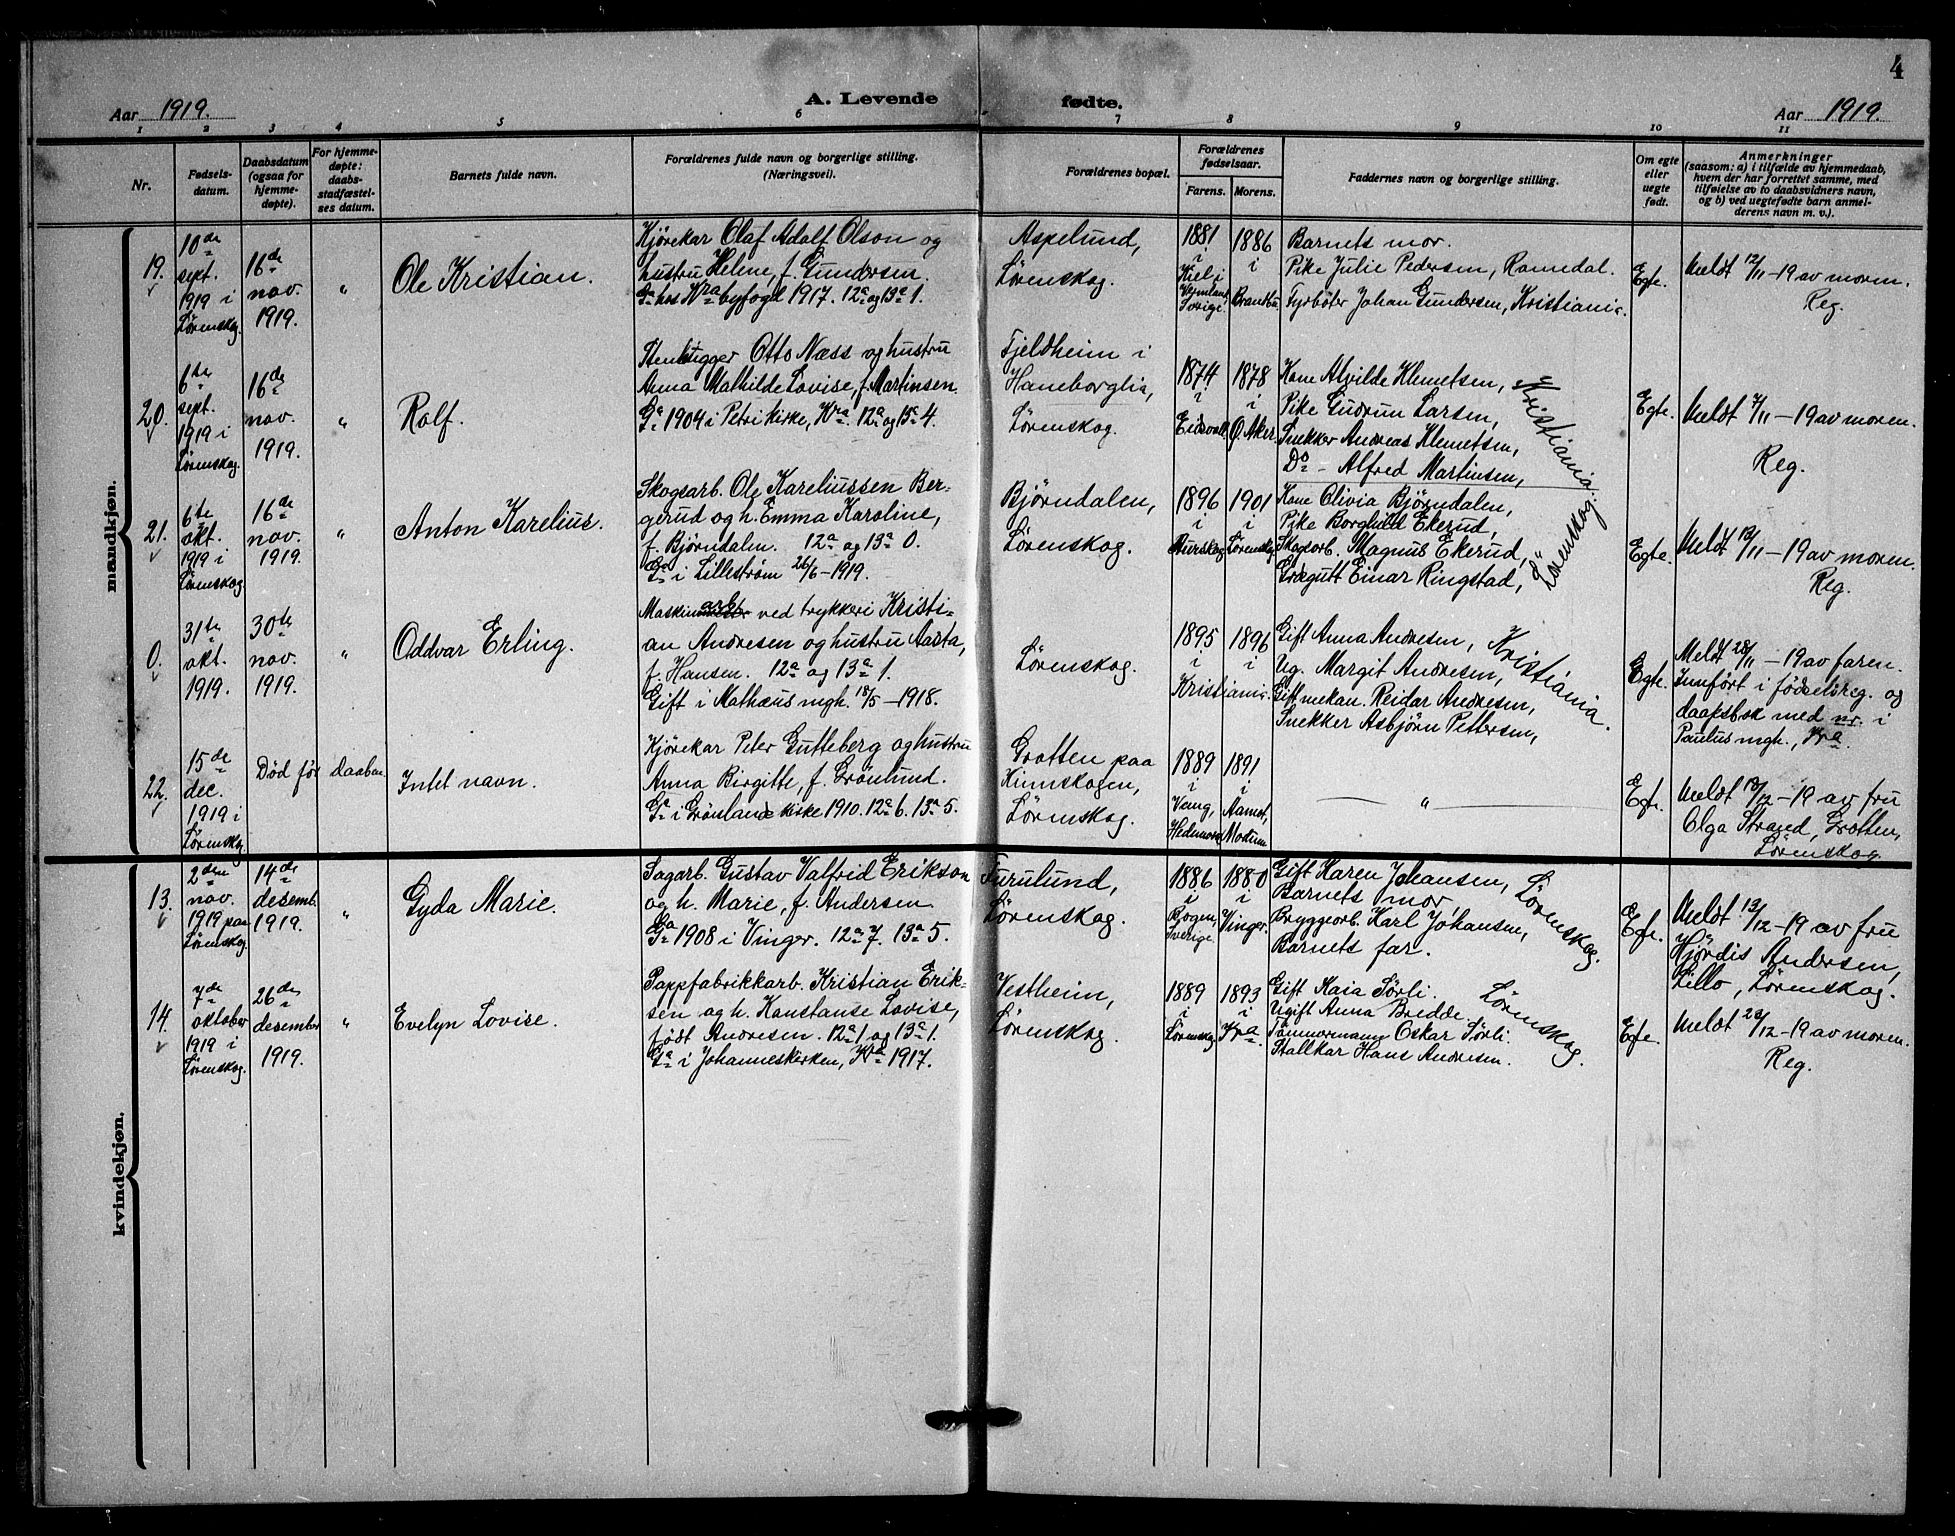 4
Aar 1919.
A. Levende fødte.
Aar 1919.
1 2 3 4 5 6 7 8 9 10 11
Nr.
Fødsels-
datum.
Daabsdatum
(ogsaa for
hjemme-
døpte).
For hjemme-
døpte:
daabs-
stadfæstel-
ses datum.
Barnets fulde navn.
Forældrenes fulde navn og borgerlige stilling.
(Næringsvei).
Forældrenes bopæl.
Forældrenes
fødselsaar.
Farens. Morens.
Faddernes navn og borgerlige stilling.
Om egte
eller
uegte
født.
Anmerkninger
(saasom: a) i tilfælde av hjemmedaab,
hvem der har forrettet samme, med
tilføielse av to daabsvidners navn,
og b) ved uegtefødte barn anmel-
derens navn m. v.).
mandkjøn.
19.
10de
sept.
1919 i
Lørenskog.
16de
nov.
1919.
"
Ole Kristian.
Kjørekar Olaf Adolf Olson og
hustru Helene, f. Gundersen.
Ga hos Kra byfogd 1917. 12a og 13a 1.
Aspelund,
Lørenskog.
1881
i
Vermland,
Sverige.
1886
i
Brandbu.
Barnets mor.
Pike Julie Pedersen, Romedal.
Fyrbøter Johan Gundersen, Kristiania.
Egte.
Meldt 12/11 – 19 av moren.
Reg.
20.
6te
sept.
1919 i
Lørenskog.
16de
nov.
1919.
"
Rolf.
Stenhugger Otto Næss og hustru
Anna Mathilde Lovise, f. Martinsen.
Ga 1904 i Petri kirke, Kra. 12a og 13a 4.
Fjeldheim i
Haneborglia,
Lørenskog.
1874
i
Eidsvoll.
1878
i
Ø. Aker.
Kone Alvilde Klemetsen,
Pike Gudrun Larsen,
Snekker Andreas Klemetsen,
Do – Alfred Martinsen,
Kristiania.
Egte.
Meldt 7/11 – 19 av moren.
Reg.
21.
6te
okt.
1919 i
Lørenskog.
16de
nov.
1919.
"
Anton Karelius.
Skogsarb. Ole Kareliussen Ber-
gerud og h. Emma Karoline,
f. Bjørndalen. 12a og 13a 0.
Ga i Lillestrøm 26/6 – 1919.
Bjørndalen,
Lørenskog.
1896
i
Aurskog
1901
i
Lørenskog
Kone Olivia Bjørndalen,
Pike Borghild Ekerud,
Skogsarb. Magnus Ekerud,
Einar Ringstad,
Lørenskog.
Egte.
Meldt 13/11 – 19 av moren.
Reg.
0.
31te
okt.
1919.
30te
nov.
1919.
"
Oddvar Erling.
Maskinarb. ved trykkeri Kristi-
an Andresen og hustru Aasta,
f. Hansen. 12a og 13a 1.
Gift i Mathæus mgh. 18/5 – 1918.
Lørenskog.
1895 1896
i i
Kristiania.
Gift Anna Andresen,
Ug. Margit Andresen,
Gift mekan. Reidar Andresen,
Snekker Asbjørn Pettersen,
Kristiania.
Egte.
Meldt 28/11 – 19 av faren.
Innført i fødselsreg. og
daapsbok med nr. i
Paulus mgh., Kra.
22.
15de
dec.
1919 i
Lørenskog.
Død før daaben.
Intet navn.
Kjørekar Peter Gutteberg og hustru
Anna Birgitte, f. Grønlund.
Ga i Grønlands kirke 1910. 12a 6. 13a 5.
Grotten paa
Kinnskogen,
Lørenskog.
1889
i
Vang,
Hedmark
1891
i
Aamot,
Modum.
"
Egte.
Meldt 18/12 – 19 av fru
Olga Strand, Grotten,
Lørenskog.
kvindekjøn.
13.
2den
nov.
1919 paa
Lørenskog.
14de
desemb.
1919.
"
Gyda Marie.
Sagarb. Gustav Valfrid Erikson
og h. Marie, f. Andersen
Ga 1908 i Vinger. 12a 7. 13a 5.
Furulund,
Lørenskog.
1886
i
Bogen,
Sverige.
1880
i
Vinger.
Gift Karen Johansen,
Barnets mor,
Bryggeorb. Karl Johansen,
Barnets far.
Lørenskog.
Egte.
Meldt 13/12 – 19 av fru
Hjørdis Andersen,
Lillo, Lørenskog.
14.
7de
oktober
1919 i
Lørenskog.
26de
desember
1919.
"
Evelyn Lovise.
Pappfabrikkarb. Kristian Erik-
sen og h. Konstanse Lovise,
født Andresen. 12a 1 og 13a 1.
Ga i Johanneskirken, Kra 1917.
Vestheim,
Lørenskog.
1889
i
Lørenskog
1893
i
Kra.
Gift Kaia Sørli.
Ugift Anna Bredde.
Tømmermann Oskar Sørli.
Stallkar Hans Andresen.
Lørenskog.
Egte.
Meldt 20/12 – 19 av moren.
Reg.